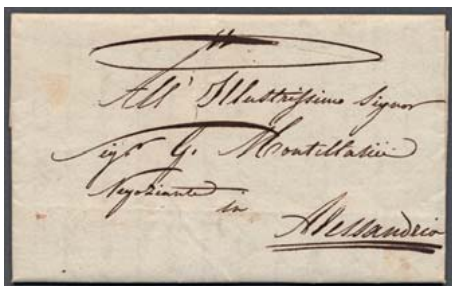 All' Illustrissimo Signor
Sigr G.
Negoziante
in
Alessandria